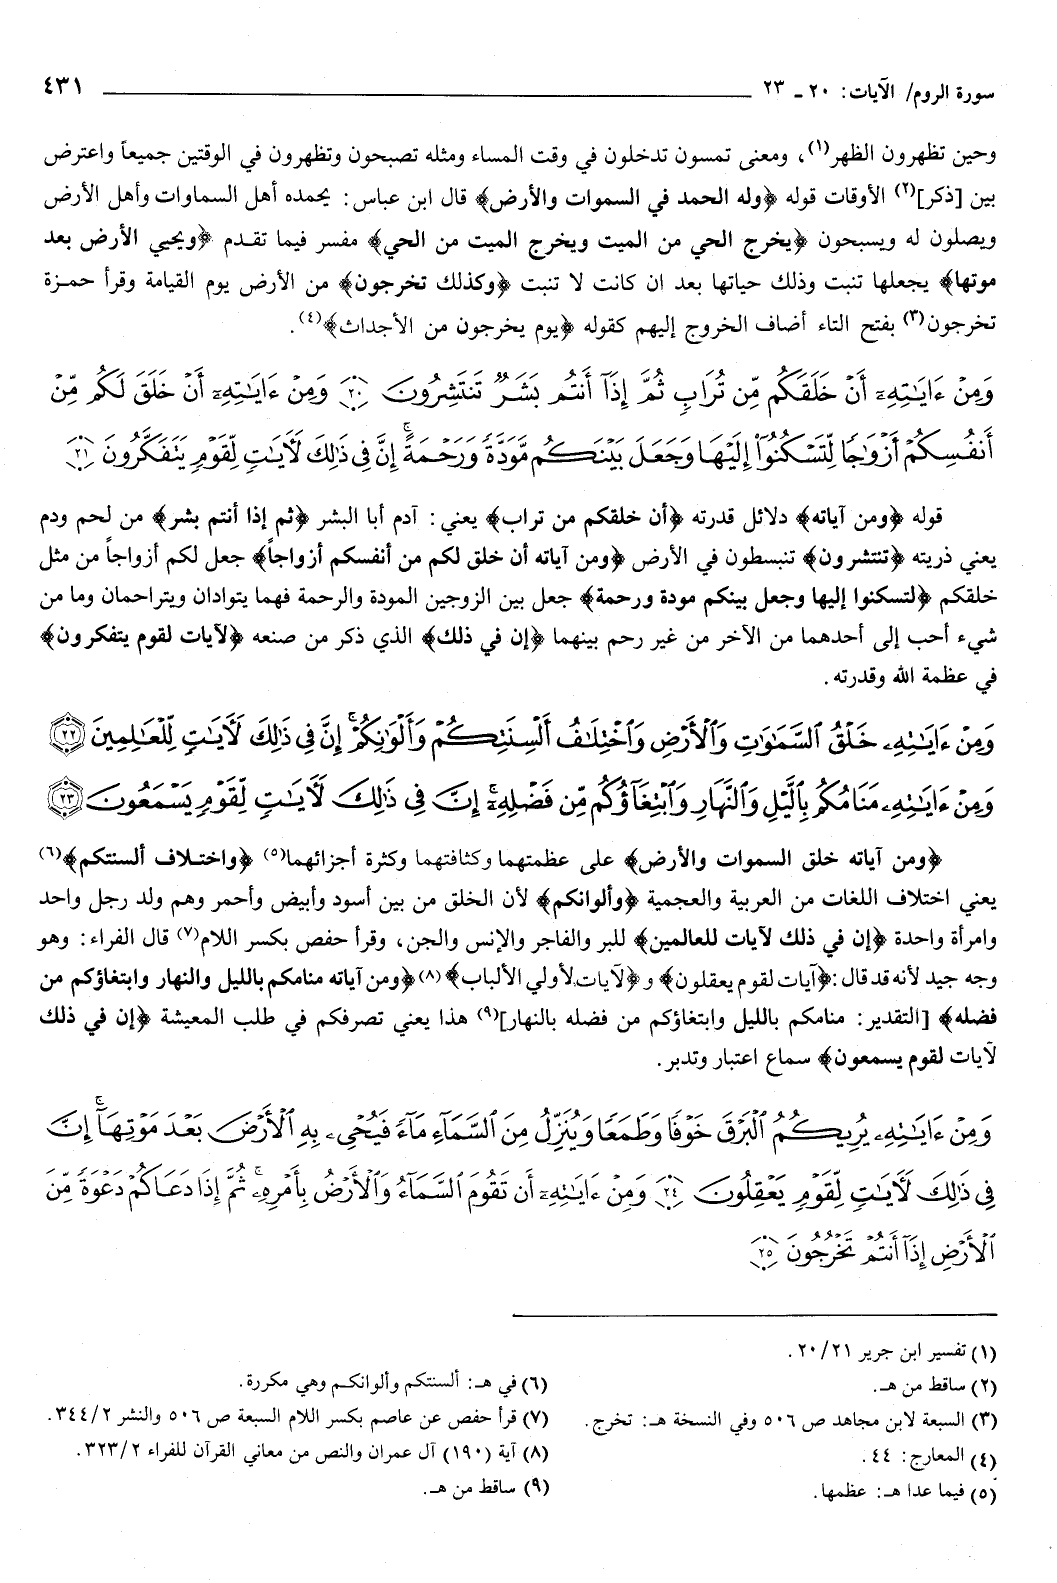 سورة الروم/ الآيات: ٢٠ ـ ٢٣ ٤٣١
وحين تظهرون الظهر(١)، ومعنى تمسون تدخلون في وقت المساء ومثله تصبحون وتظهرون في الوقتين جميعاً واعترض
بين [ذكر](٢) الأوقات قوله ﴿وله الحمد في السموات والأرض﴾ قال ابن عباس: يحمده أهل السماوات وأهل الأرض
ويصلون له ويسبحون ﴿يخرج الحي من الميت ويخرج الميت من الحي﴾ مفسر فيما تقدم ﴿ويحيي الأرض بعد
موتها﴾ يجعلها تنبت وذلك حياتها بعد ان كانت لا تنبت ﴿وكذلك تخرجون﴾ من الأرض يوم القيامة وقرأ حمزة
تخرجون(٣) بفتح التاء أضاف الخروج إليهم كقوله ﴿يوم يخرجون من الأجداث﴾(٤).
وَمِنْ ءَايَٰتِهِۦٓ أَنْ خَلَقَكُم مِّن تُرَابٍ ثُمَّ إِذَآ أَنتُم بَشَرٌ تَنتَشِرُونَ ٢٠ وَمِنْ ءَايَٰتِهِۦٓ أَنْ خَلَقَ لَكُم مِّنْ
أَنفُسِكُمْ أَزْوَٰجًا لِّتَسْكُنُوٓا۟ إِلَيْهَا وَجَعَلَ بَيْنَكُم مَّوَدَّةً وَرَحْمَةً ۚ إِنَّ فِى ذَٰلِكَ لَءَايَٰتٍ لِّقَوْمٍ يَتَفَكَّرُونَ ٢١
قوله ﴿ومن آياته﴾ دلائل قدرته ﴿أن خلقكم من تراب﴾ يعني: آدم أبا البشر ﴿ثم إذا أنتم بشر﴾ من لحم ودم
يعني ذريته ﴿تنتشرون﴾ تنبسطون في الأرض ﴿ومن آياته أن خلق لكم من أنفسكم أزواجاً﴾ جعل لكم أزواجاً من مثل
خلقكم ﴿لتسكنوا إليها وجعل بينكم مودة ورحمة﴾ جعل بين الزوجين المودة والرحمة فهما يتوادان ويتراحمان وما من
شيء أحب إلى أحدهما من الآخر من غير رحم بينهما ﴿إن في ذلك﴾ الذي ذكر من صنعه ﴿لآيات لقوم يتفكرون﴾
في عظمة الله وقدرته.
وَمِنْ ءَايَٰتِهِۦ خَلْقُ ٱلسَّمَٰوَٰتِ وَٱلْأَرْضِ وَٱخْتِلَٰفُ أَلْسِنَتِكُمْ وَأَلْوَٰنِكُمْ ۚ إِنَّ فِى ذَٰلِكَ لَءَايَٰتٍ لِّلْعَٰلِمِينَ ٢٢
وَمِنْ ءَايَٰتِهِۦ مَنَامُكُم بِٱلَّيْلِ وَٱلنَّهَارِ وَٱبْتِغَآؤُكُم مِّن فَضْلِهِۦٓ ۚ إِنَّ فِى ذَٰلِكَ لَءَايَٰتٍ لِّقَوْمٍ يَسْمَعُونَ ٢٣
﴿ومن آياته خلق السموات والأرض﴾ على عظمتهما وكثافتهما وكثرة أجزائهما(٥) ﴿واختلاف ألسنتكم﴾(٦)
يعني اختلاف اللغات من العربية والعجمية ﴿وألوانكم﴾ لأن الخلق من بين أسود وأبيض وأحمر وهم ولد رجل واحد
وامرأة واحدة ﴿إن في ذلك لآيات للعالمين﴾ للبر والفاجر والإنس والجن، وقرأ حفص بكسر اللام(٧) قال الفراء: وهو
وجه جيد لأنه قد قال: ﴿آيات لقوم يعقلون﴾ و ﴿لآيات لأولي الألباب﴾(٨) ﴿ومن آياته منامكم بالليل والنهار وابتغاؤكم من
فضله﴾ [التقدير: منامكم بالليل وابتغاؤكم من فضله بالنهار](٩) هذا يعني تصرفكم في طلب المعيشة ﴿إن في ذلك
لآيات لقوم يسمعون﴾ سماع اعتبار وتدبر.
وَمِنْ ءَايَٰتِهِۦ يُرِيكُمُ ٱلْبَرْقَ خَوْفًا وَطَمَعًا وَيُنَزِّلُ مِنَ ٱلسَّمَآءِ مَآءً فَيُحْىِۦ بِهِ ٱلْأَرْضَ بَعْدَ مَوْتِهَآ ۚ إِنَّ
فِى ذَٰلِكَ لَءَايَٰتٍ لِّقَوْمٍ يَعْقِلُونَ ٢٤ وَمِنْ ءَايَٰتِهِۦٓ أَن تَقُومَ ٱلسَّمَآءُ وَٱلْأَرْضُ بِأَمْرِهِۦ ۚ ثُمَّ إِذَا دَعَاكُمْ دَعْوَةً مِّنَ
ٱلْأَرْضِ إِذَآ أَنتُمْ تَخْرُجُونَ ٢٥
(١) تفسير ابن جرير ٢٠/٢١.
(٢) ساقط من هـ.
(٣) السبعة لابن مجاهد ص ٥٠٦ وفي النسخة هـ: تخرج.
(٤) المعارج: ٤٤.
(٥) فيما عدا هـ: عظمها.
(٦) في هـ: ألسنتكم وألوانكم وهي مكررة.
(٧) قرأ حفص عن عاصم بكسر اللام السبعة ص ٥٠٦ والنشر ٣٤٤/٢.
(٨) آية (١٩٠) آل عمران والنص من معاني القرآن للفراء ٣٢٣/٢.
(٩) ساقط من هـ.